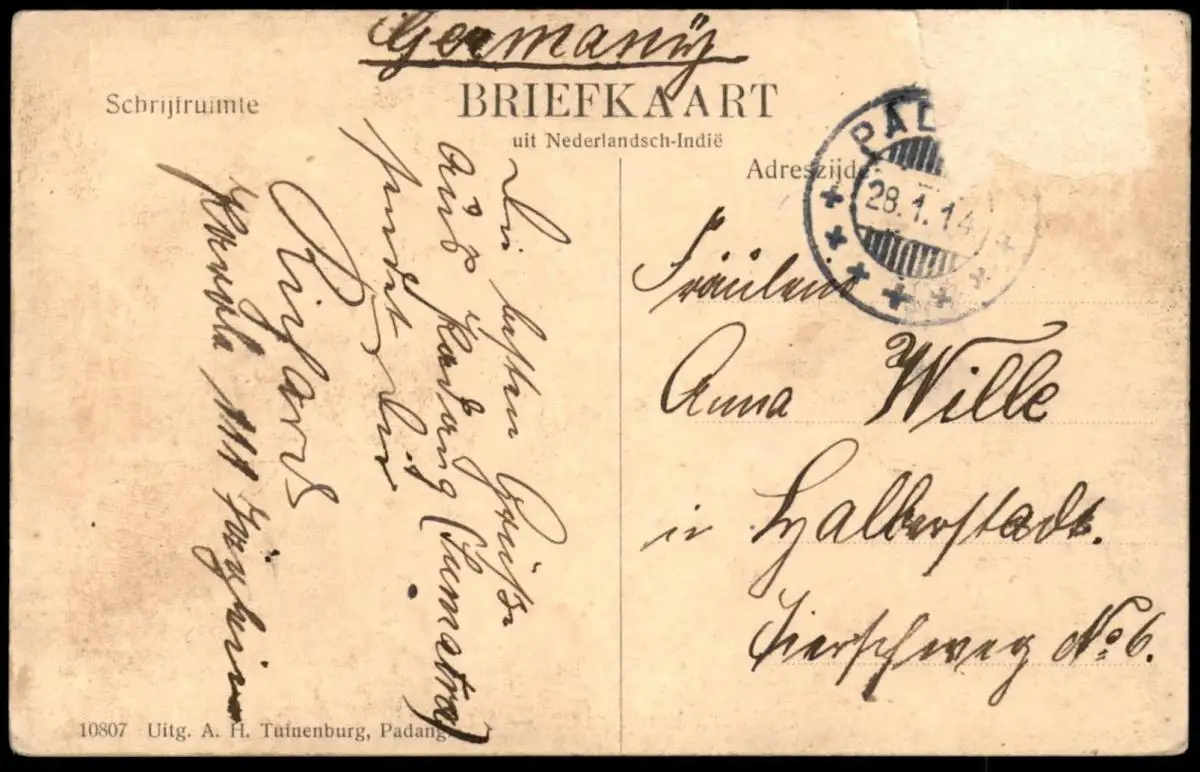 Germany
Schrijfruimte
BRIEFKAART
uit Nederlandsch-Indië
Adreszijde
PAD
28.1.14
Die besten Grüße
aus Padang (Sumatra)
sendet Dir
Richard
Fräulein
Anna Wille
in Halberstadt.
Zierschweg No 6.
10807 Uitg. A. H. Tuinenburg, Padang.